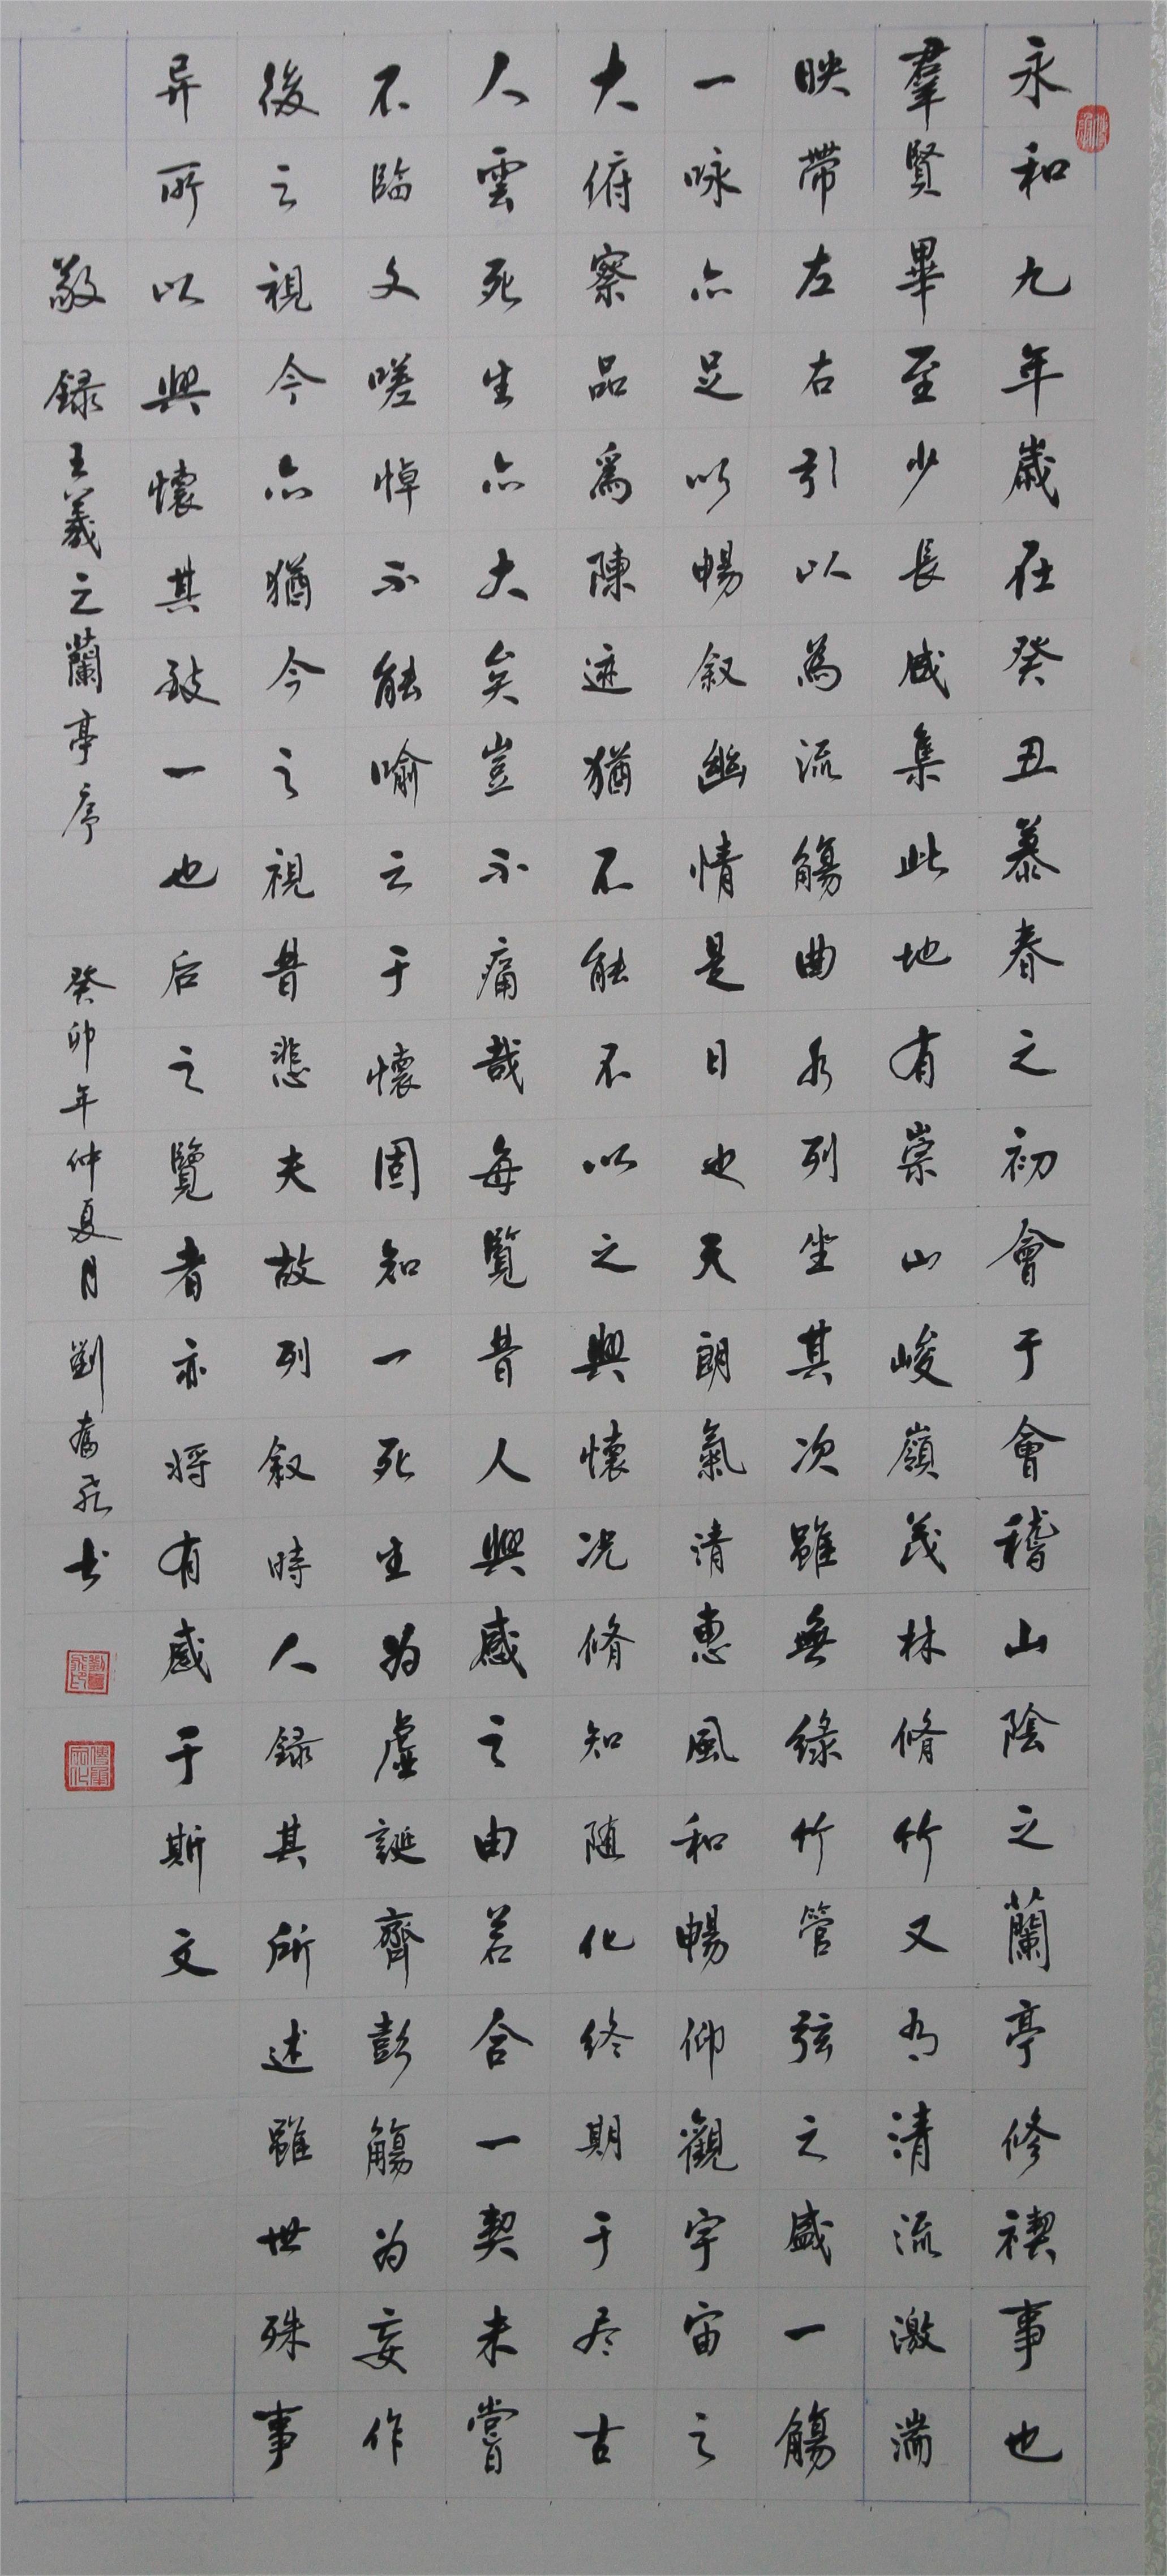 永和九年歲在癸丑暮春之初會于會稽山陰之蘭亭修禊事也
羣賢畢至少長咸集此地有崇山峻嶺茂林脩竹又有清流激湍
映帶左右引以為流觴曲水列坐其次雖無絲竹管弦之盛一觴
一咏亦足以暢叙幽情是日也天朗氣清惠風和暢仰觀宇宙之
大俯察品爲陳迹猶不能不以之興懷况脩知随化终期于尽古
人雲死生亦大矣豈不痛哉每覧昔人興感之由若合一契未嘗
不臨文嗟悼不能喻之于懷固知一死生为虛誕齊彭觴为妄作
後之視今亦猶今之視昔悲夫故列叙時人録其所述雖世殊事
异所以興懷其致一也后之覽者亦将有感于斯文
敬録王羲之蘭亭序 癸卯年仲夏月劉奮飛书